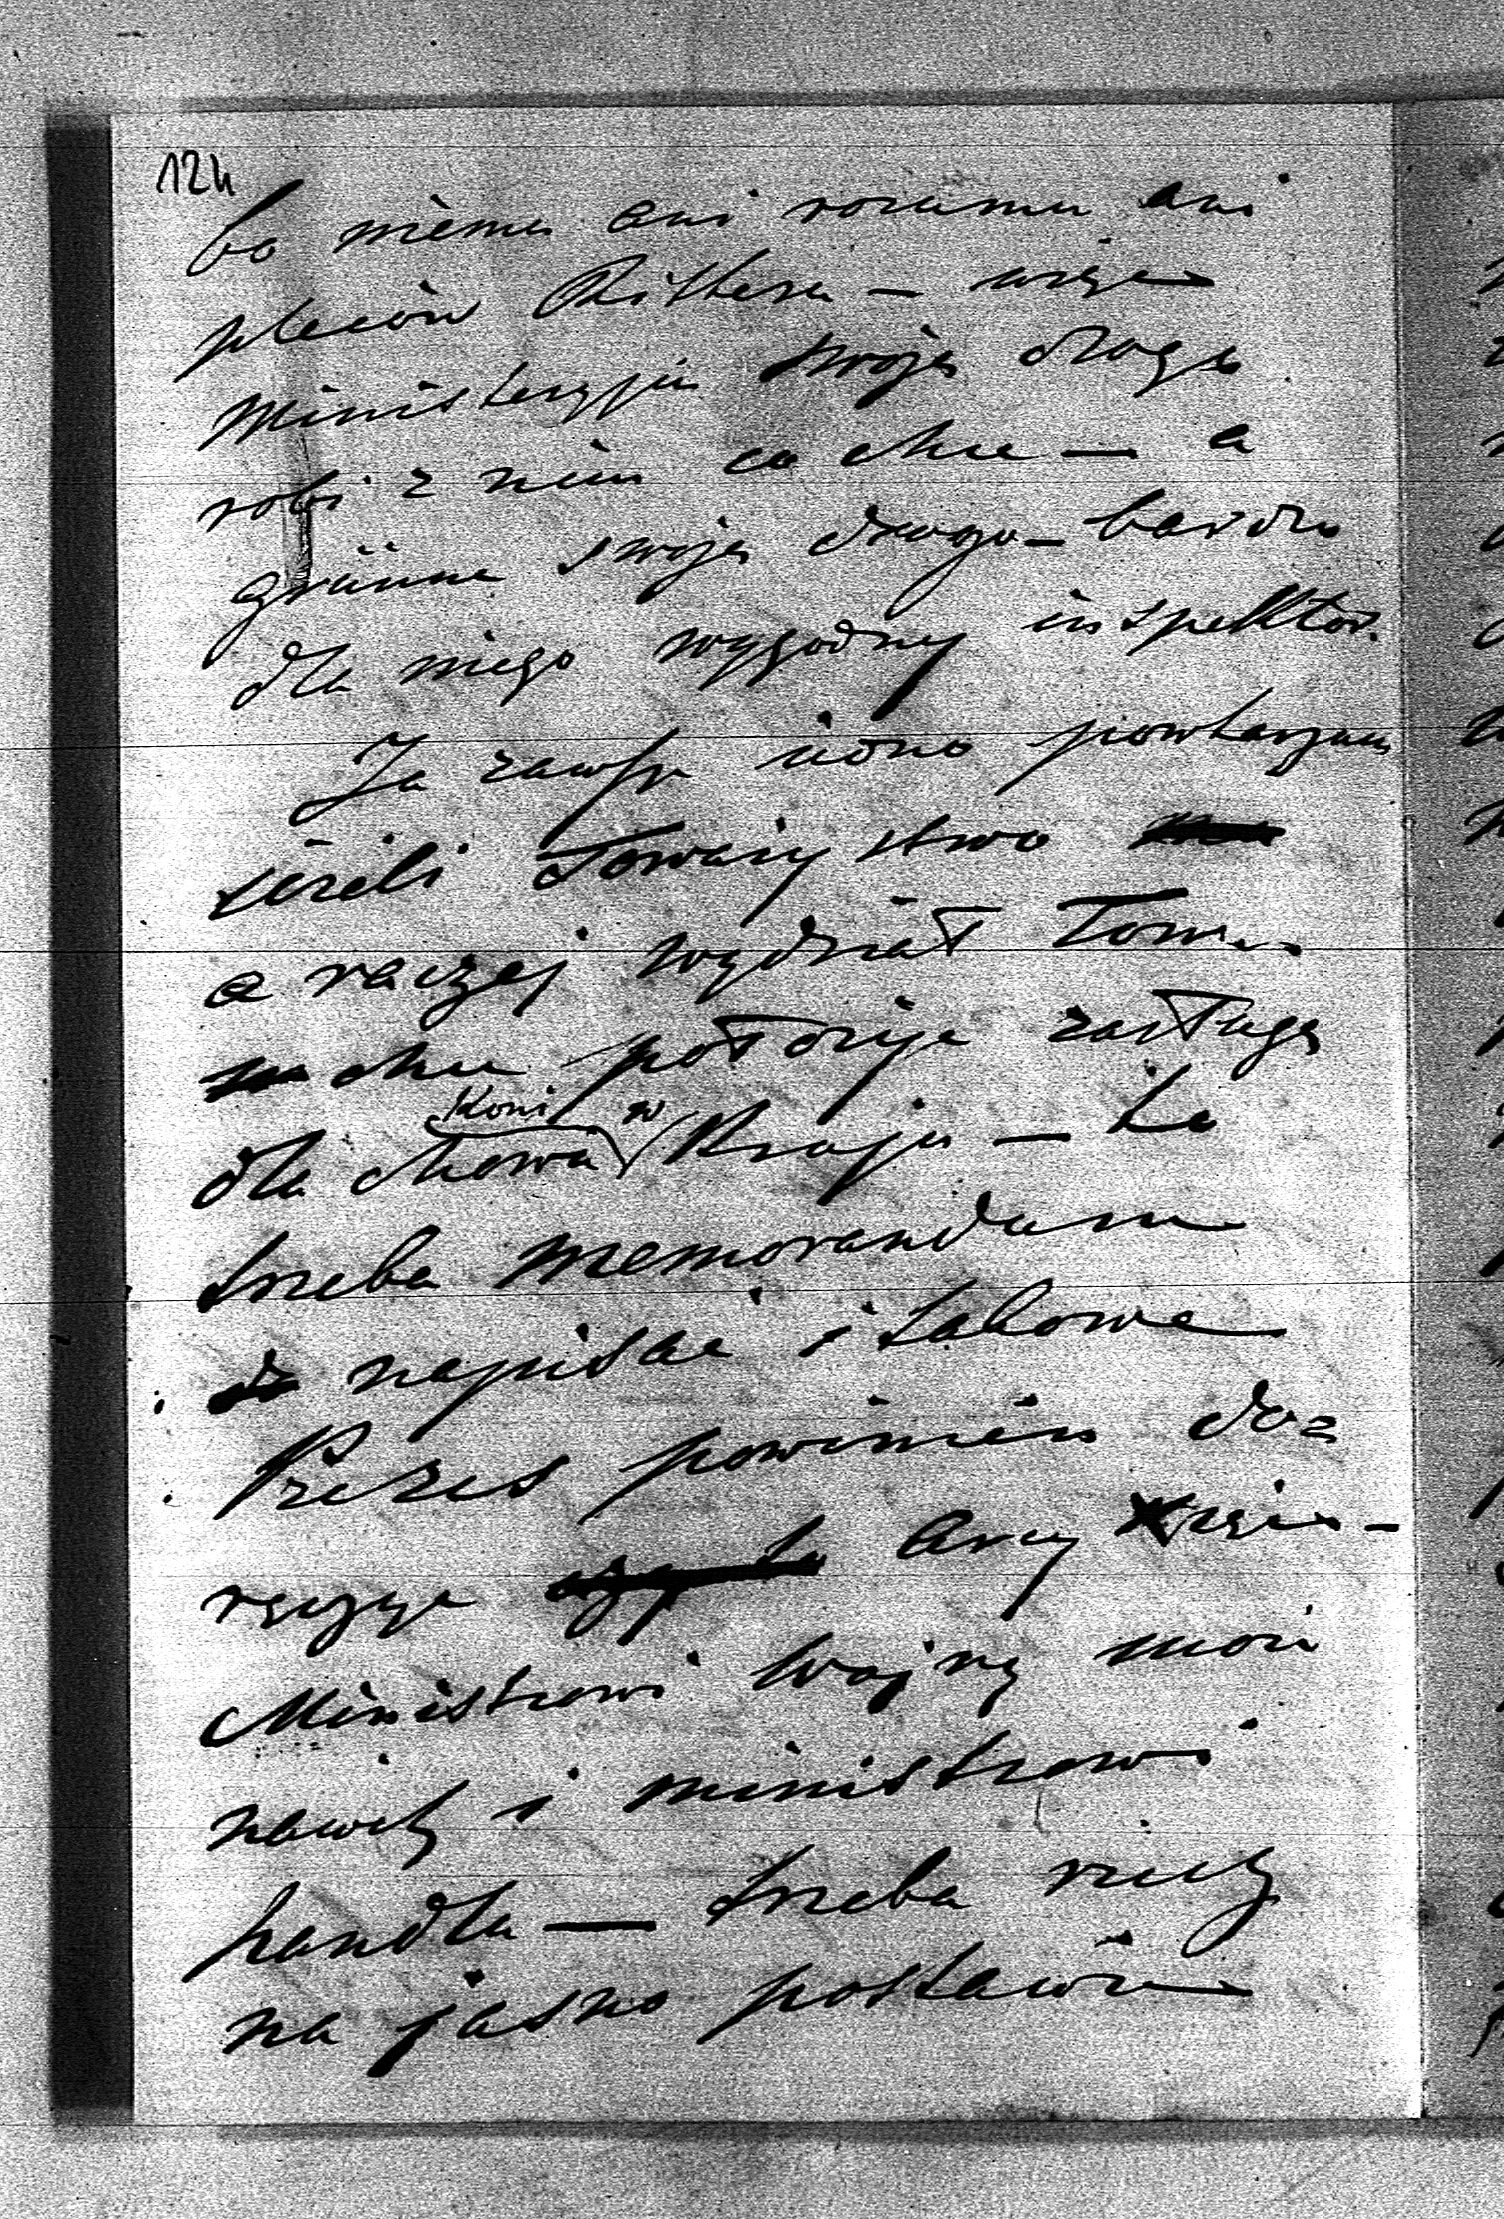 124
bo niema ani rozumu ani
pleców Rittera — więc
Ministeryjum swoją drogą
robi z nim co chce — a
swoją drogą — bardzo
dla niego wygodny inspektor.
Ja zawsze iedno powtarzam
ieżeli Towarzystwo
a raczej wydział Tow.
chce położyć zasługę
dla chowu koni w Kraju — to
trzeba memorandum
napisać i takowe
Prezes powinien do=
ręczyć Arcyxsięciu -
Ministrowi Wojny może
nawet i ministrowi
handlu — trzeba rzecz
na jasno postawić